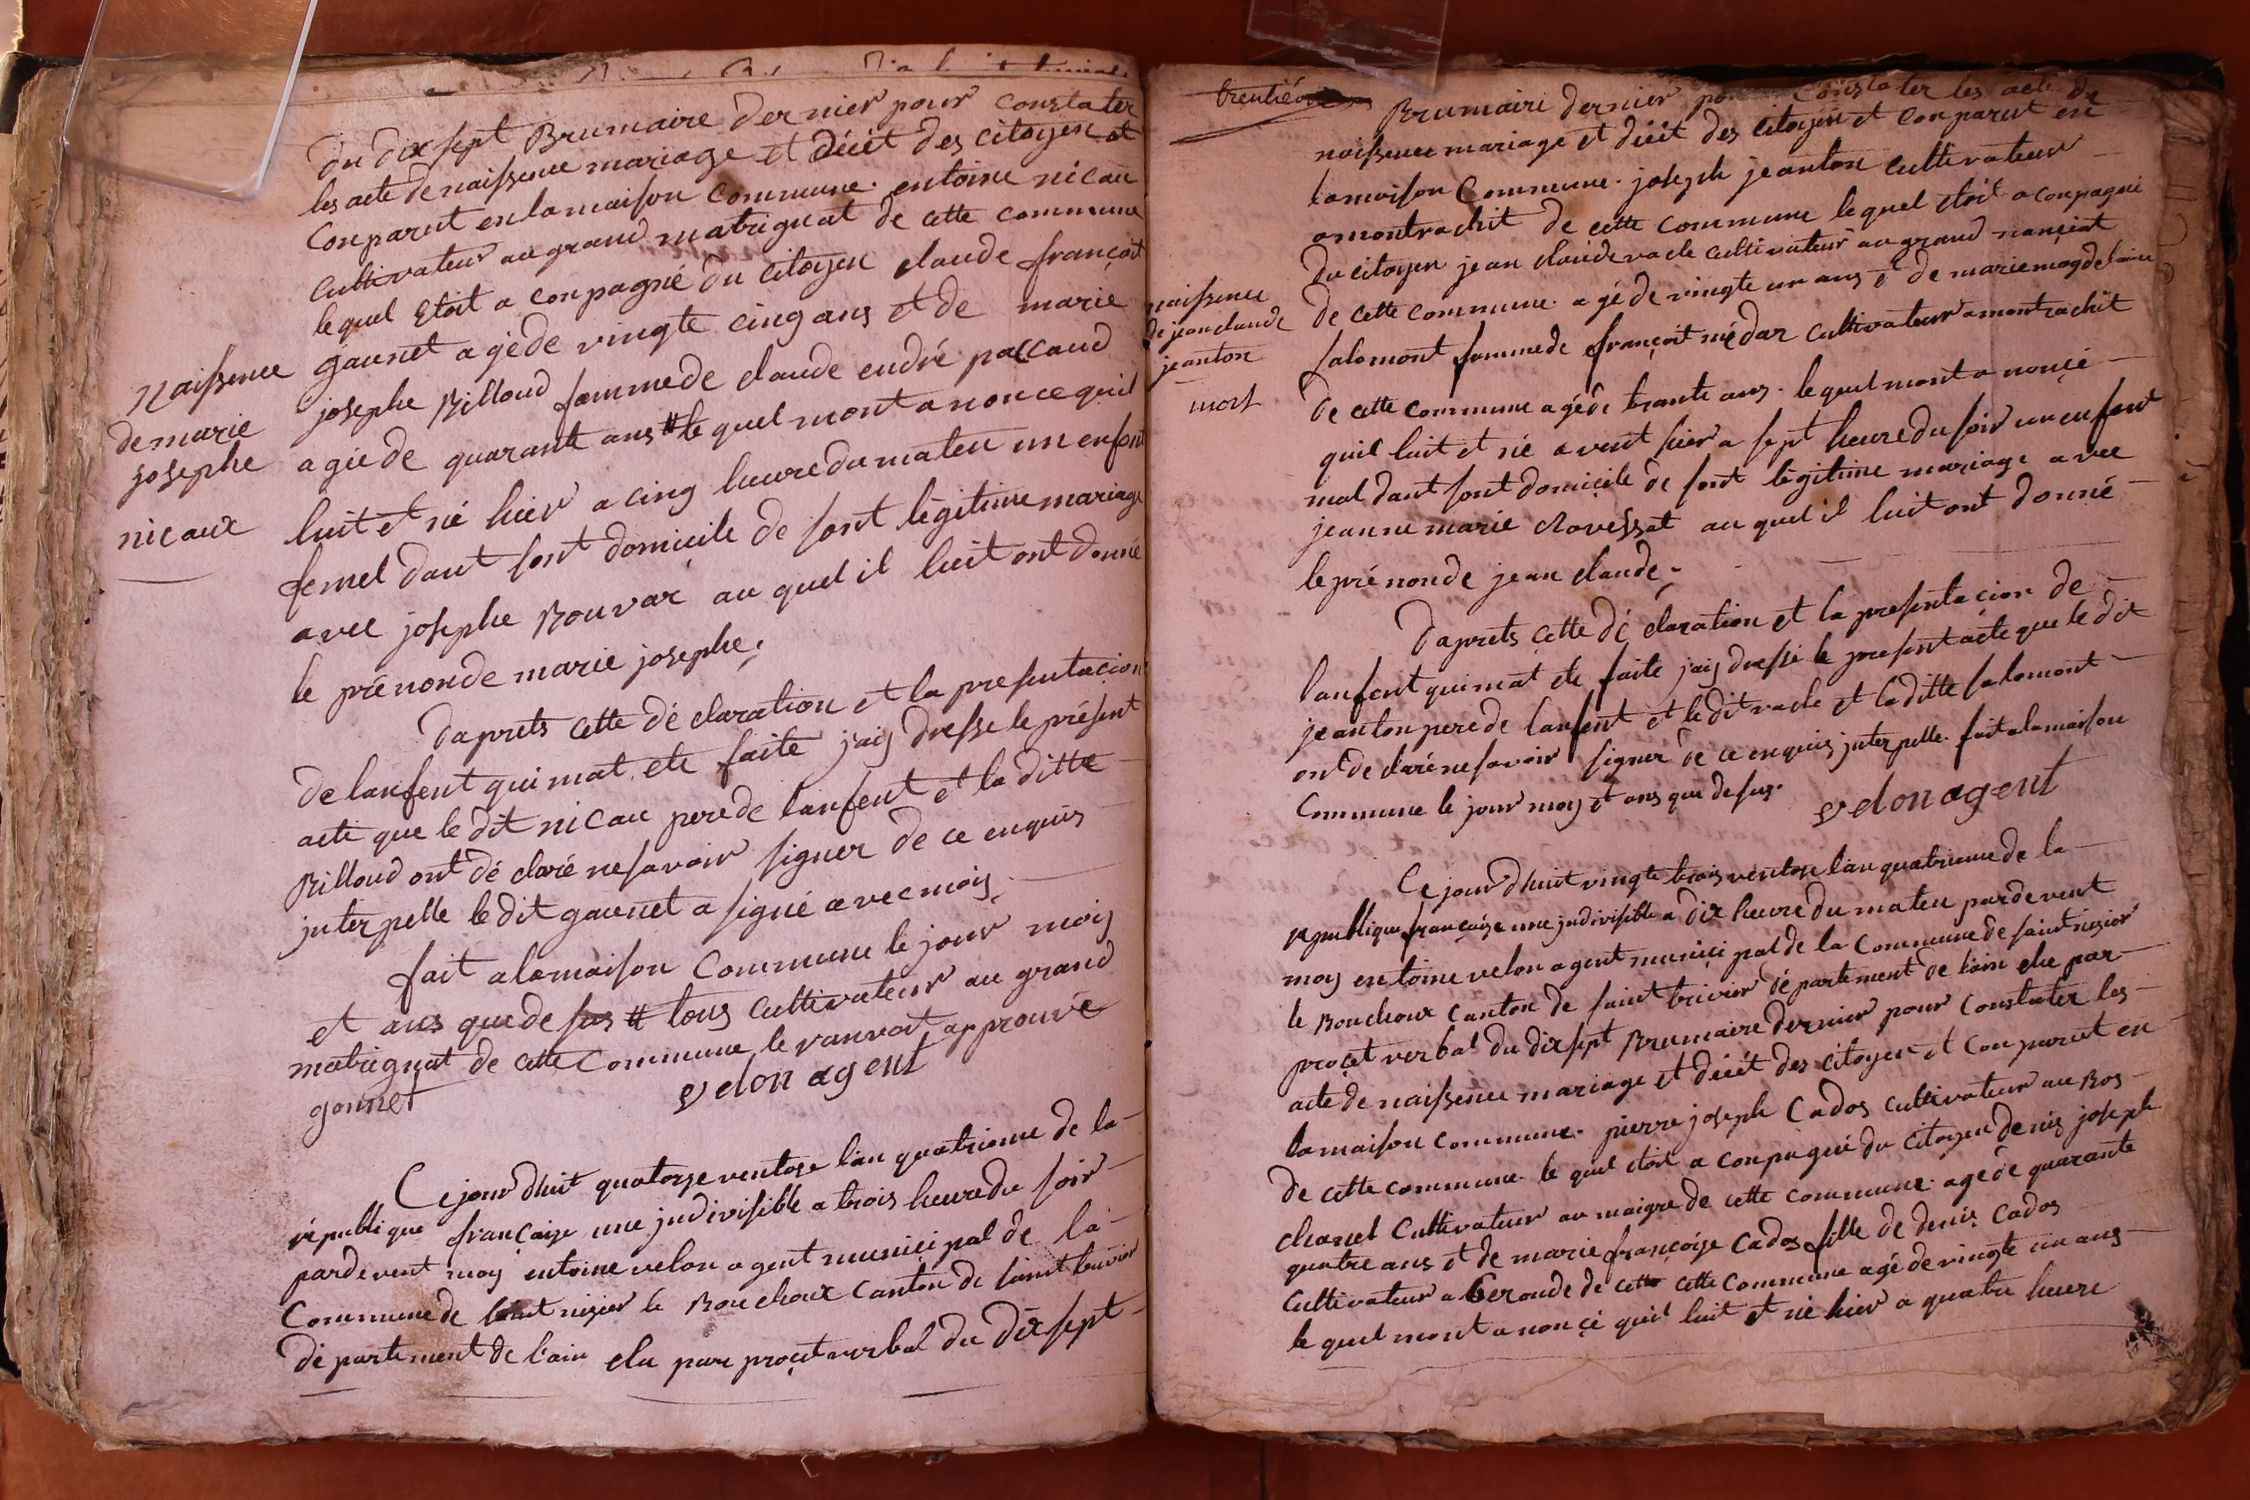 du dix sept Brumaire dernier pour constater
les acte de naissence mariage et décét des citoyen et
conparut en la maison commune. entoine nicau
cultivateur au grand matrignat de cette commune
le quel étoit a conpagné du citoyen claude françoit
gaunet agé de vingte cinq ans et de marie
josephe Billoud fømme de claude endré paccaud
agéé de quarante ans # le quel mont anonce quil
luit et né hier a cinq heure du maten un enfent
femel dant sont domicile de sont légitime mariage
avec josephe Bouvar au quel il luit ont donné
le prénon de marie josephe.
Naissence
de marie
josephe
nicaux
daprets cette dé claration et la presentacion
de lanfent qui mat ete faite jaij dresse le présent
acte que le dit nicau pere de lanfent et la ditte
Billoud ont dé claré ne savoir signer de ce enquis
jnterpelle le dit gaunet a signé avec mois
fait a la maison commune le jour mois
et ans que de sus # tous cultivateur au grand
matrignat de cette commune le ranvoit approuvé
gonnet velon agent
Ce jourdhuit quatorze ventose lan quatrieme de la
république françaize une jndivisible a trois heure du soir
pardevent moy entoine velon agent municipal de la
Commune de saint nizier le Bouchoux Canton de saint trivier
dé partement de lain elu par procet verbal du dix sept
trentiéme
Brumaire dernier pour constater les acte de
naissence mariage et décét des citoyen et conparut en
la maison Commune. joseph jeanton cultivateur
a montrachit de cette commune le quel étoit a conpagné
du citoyen jean claude vacle cultivateur au grand nanciat
de cette commune. agé de vingte un ans et de marie magdelaine
salomont femme de françoit médar cultivateur a montrachit
de cette commune agéé de trante ans. le quel mont a noncé
quil luit et né avent hier a sept heure du soir un enfent
mal dant sont domicile de sont légitime mariage avec
jeanne marie Clavessat au quel il luit ont donné
le prénon de jean claude.
naissence
de jean claude
jeanton
mort
daprets cette dé claration et la presentacion de
lanfent qui mat ete faite jaij dressé le present acte que le dit
jeanton pere de lanfent et le dit vacle et la ditte salomont
ont de claré ne savoir signer de ce enquis jnterpelle. fait a la maison
Commune le jour moy et ans que de sus.
velon agent
Ce jourdhuit vingte trois ventose lan quatrieme de la
republique françaize une jndivisible a dix heure du maten pardevent
moy entoine velon agent municipal de la Commune de saint nizier
le Bouchoux Canton de saint trivier dé partement de lain elu par
procet verbal du dix sept Brumaire dernier pour constater les
acte de naissence mariage et décét des citoyen et conparut en
la maison commune. pierre joseph Cados cultivateur au Bos
de cette commune. le quel étoit a conpagné du citoyen denis joseph
chanel Cultivateur au maigre de cette commune. agé de quarante
quatre ans et de marie françoize Cados fille de denis Cados
Cultivateur a Geronde de cette cette commune agé de vingte un ans
le quel mont a noncé quil luit et né hier a quatre heure